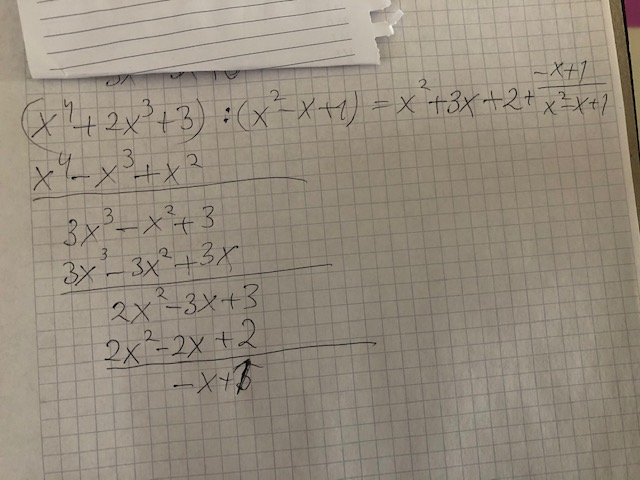 (x⁴+2x³+3):(x²-x+1)=x²+3x+2+(-x+1)/(x²-x+1)
x⁴-x³+x²
3x³-x²+3
3x³-3x²+3x
2x²-3x+3
2x²-2x+2
-x+1